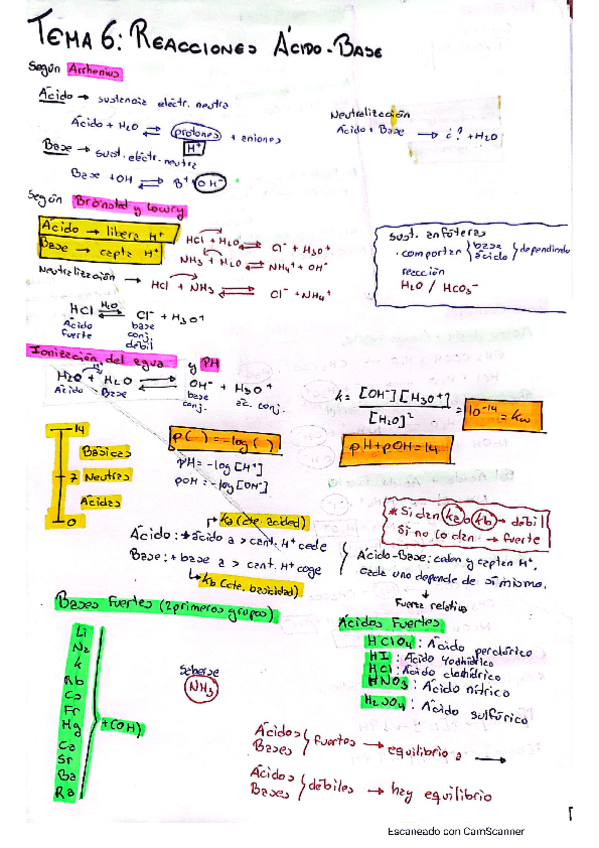 TEMA 6: REACCIONES ÁCIDO-BASE
Según Arrhenius
Ácido → sustancia eléctr. neutra
Ácido + H2O ⇄ protones + aniones
H+
Base → sust. eléctr. neutra
Base + OH ⇄ B+ OH-
Neutralización
Ácido + Base → ¿? + H2O
Según Brönsted y Lowry
Ácido → libera H+
Base → capta H+
HCl + H2O ⇄ Cl- + H3O+
NH3 + H2O ⇄ NH4+ + OH-
Neutralización → HCl + NH3 ⇄ Cl- + NH4+
sust. anfóteras
· comportan { base ácido } dependiendo
reacción
H2O / HCO3-
HCl H2O ⇄ Cl- + H3O+
Ácido fuerte
base conj. débil
Ionización del agua y PH
H2O + H2O ⇄ OH- + H3O+
Ácido Base base conj. ác. conj.
k = [OH-][H3O+] / [H2O]2 = 10-14 = kw
p( ) = -log( )
pH = -log[H+]
pOH = -log[OH-]
pH + pOH = 14
14
Básicas
7 Neutras
Ácidas
0
ka (cte. acidez)
Ácido: + ácido a > cant. H+ cede
Base: + base a > cant. H+ coge
kb (cte. basicidad)
* Si dan ka o kb → débil
Si no lo dan → fuerte
Ácido-Base: ceden y captan H+,
cada uno depende de sí mismo.
↓
Fuerza relativa
Bases Fuertes (2 primeros grupos)
Li
Na
K
Rb
Cs
Fr
Mg
Ca
Sr
Ba
Ra
+ (OH)
Saberse
NH3
Ácidos Fuertes
HClO4: Ácido perclórico
HI: Ácido Yodhídrico
HCl: Ácido clorhídrico
HNO3: Ácido nítrico
H2SO4: Ácido sulfúrico
Ácidos
Bases } fuertes → equilibrio a →
Ácidos
Bases } débiles → hay equilibrio
Escaneado con CamScanner